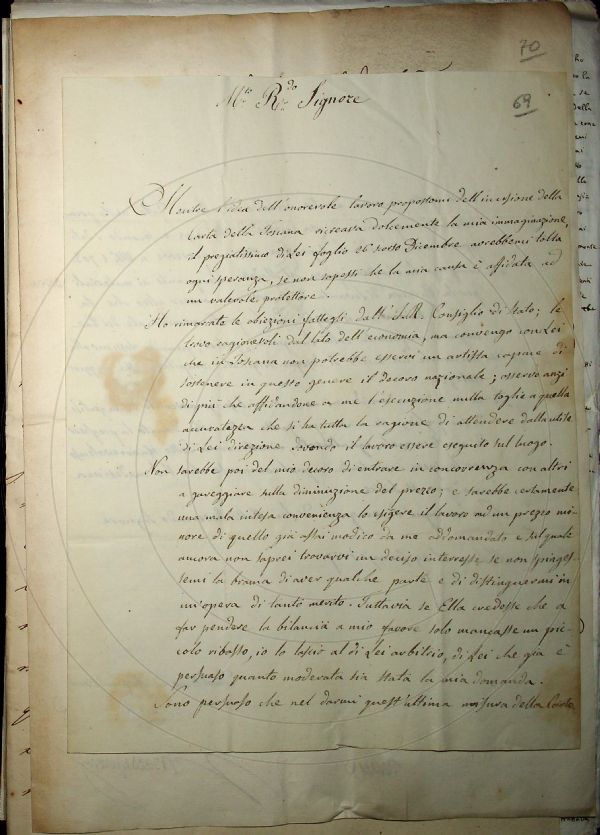 70
69
M.to R.do Signore
Mentre l'idea dell'onorevole lavoro propostomi dell'incisione della
Carta della Toscana ricreava dolcemente la mia immaginazione,
il pregiatissimo di Lei foglio 26 scorso Dicembre avrebbemi tolta
ogni speranza, se non sapessi che la mia causa è affidata ad
un valevole protettore
Ho rimarcato le obiezioni fattegli dall' I.R. Consiglio di Stato; le
trovo ragionevoli dal lato dell'economia, ma convengo con Lei
che in Toscana non potrebbe esservi un artista capace di
sostenere in questo genere il decoro nazionale; osservo anzi
di più che affidandone a me l'esecuzione nulla toglie a quella
accuratezza che si ha tutta la ragione di attendere dalla utile
di Lei direzione dovendo il lavoro essere eseguito sul luogo.
Non sarebbe poi del mio decoro di entrare in concorrenza con altri
a gareggiare sulla diminuzione del prezzo; e sarebbe certamente
una mala intesa convenienza lo esigere il lavoro ad un prezzo mi-
nore di quello già assai modico da me addimandato e sul quale
ancora non saprei trovarvi un deciso interesse se non spinges-
semi la brama di aver qualche parte e di distinguermi in
un'opera di tanto merito. Tuttavia se Ella credesse che a
far pendere la bilancia a mio favore solo mancasse un pic-
colo ribasso, io lo lascio al di Lei arbitrio, di Lei che già è
persuaso quanto moderata sia stata la mia domanda.
Sono persuaso che nel darmi quest'ultima misura della Carta